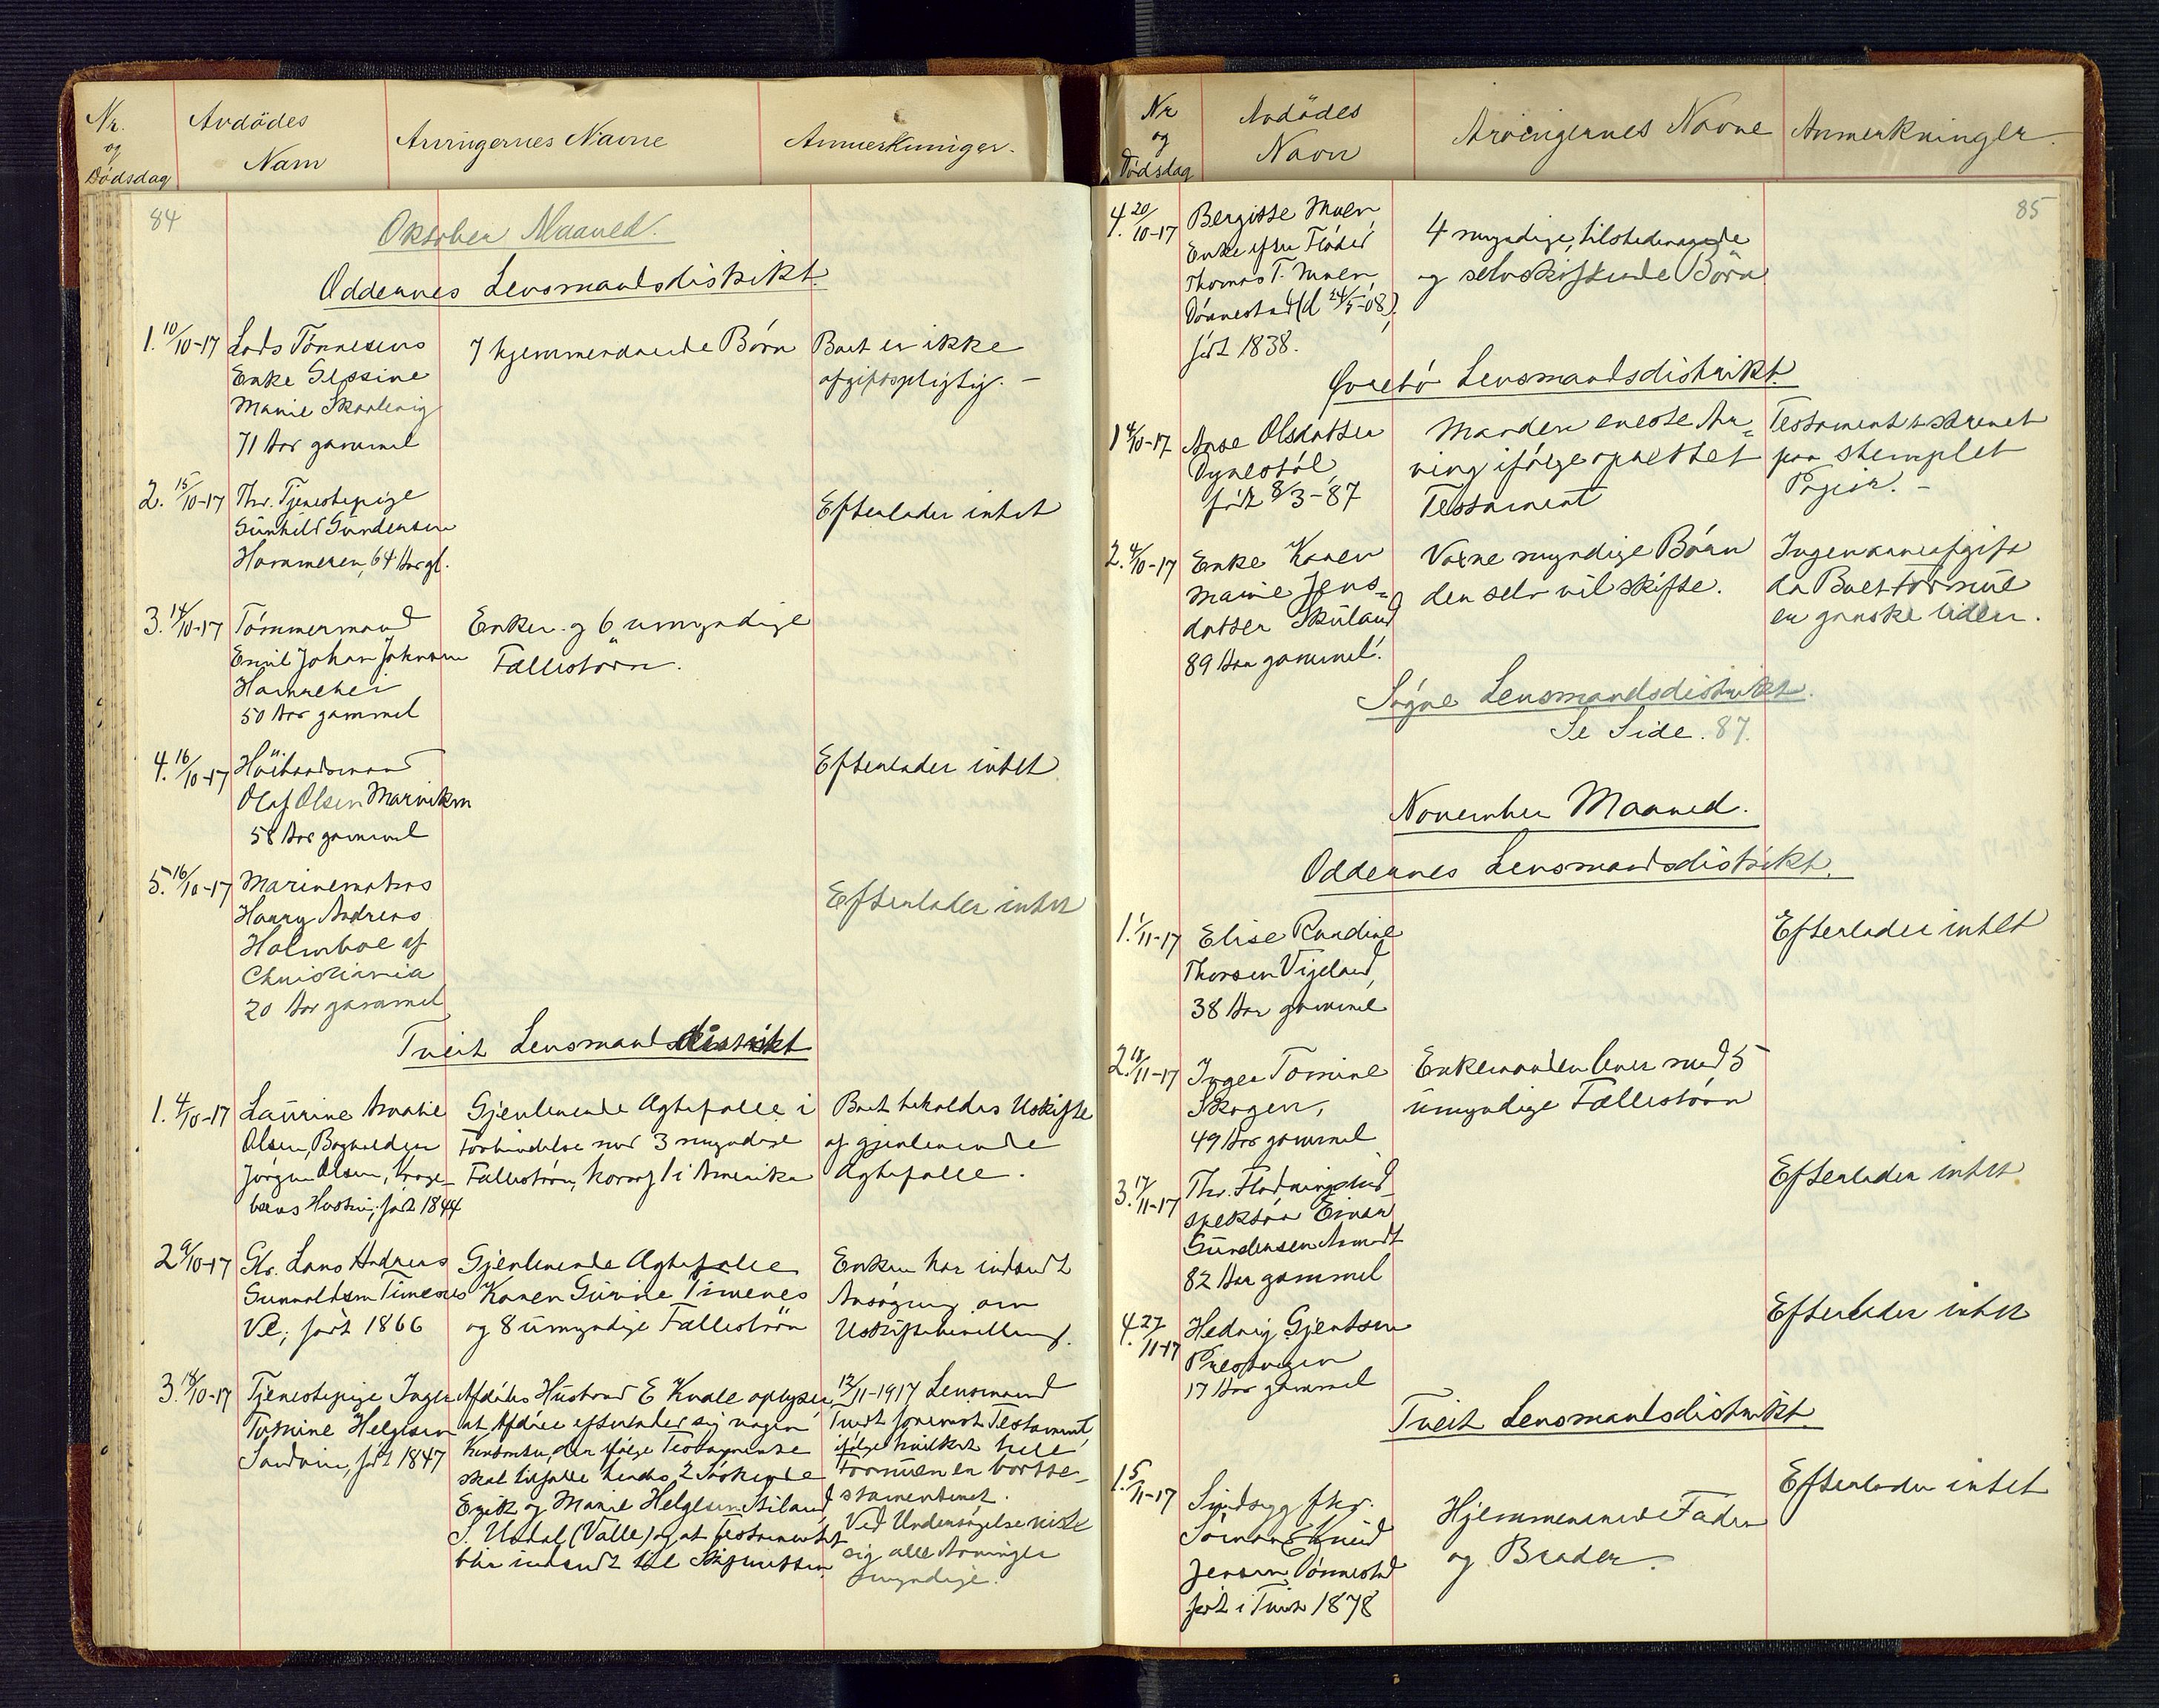 Nr.
og
Dødsdag
Avdødes
Navn
Arvingernes Navne
Anmerkninger.
84
Oktober Maaned.
Oddernes Lensmandsdistrikt.
1. 10/10-17
Enke
Marie
71 Aar gammel
7 hjemmeværende Børn
Boet er ikke
afgiftspligtig. –
2. 15/10-17
Fhv. Tjenestepige
Gunhild Gundersen
Hammeren, 64 Aar gl.
Efterlader intet
3. 14/10-17
Tømmermand
Emil Johan Johnsen
50 Aar gammel
Enken og 6 umyndige
Fællesbørn.
4. 16/10-17
Olaf Olsen
58 Aar gammel
Efterlader intet
5. 16/10-17
Marinematros
Harry Andreas
Holmboe af
Christiania
20 Aar gammel
Efterlader intet
Tveit Lensmandsdistrikt
1. 4/10-17
Laurine Amalie
Olsen,
Jørgen Olsen,
Hustru, født 1844
Gjenlevende Ægtefælle i
Forbindelse med 3 myndige
Fællesbørn, hvoraf 1 i Amerika
Boet beholdes Uskifte
af gjenlevende
Ægtefælle.
2 9/10-17
Gbr. Lars Andreas
Gunvaldsen Timenes
født 1866
Gjenlevende Ægtefælle
Karen Gurine Timenes
og 8 umyndige Fællesbørn
Enken har indsendt
Ansøgning om
Uskiftebevilling.
3. 18/10-17
Tjenestepige Inger
Tomine Helgesen
født 1847
Afdødes Husbond E Kvale oplyser
at Afdøde efterlader sig nogen
Kontanter, der ifølge Testamente
skal tilfalde hendes 2 Søskende
og Marie Helgesen
(Valle) og at Testamentet
blir indsendt til Skifteretten
12/11-1917 Lensmand
Tveit Testament,
ifølge hvilket hele
Formuen er bortte-
stamenteret.
Ved Undersøgelse viste
sig alle Arvinger
myndige.
Nr
og
Dødsdag
Avdødes
Navn
Arvingernes Navne
Anmerkninger.
85
4. 20/10-17
Bergitte Moen,
Enke efter
Thomas T. Moen,
Dønnestad (d 24/5-08),
født 1838.
4 myndige, tilstedeværende
og selvskiftende Børn
Øvrebø Lensmandsdistrikt
1 4/10-17
Aase Olsdatter
født 8/3-87
Manden eneste Ar=
ving ifølge oprettet
Testament
Testamentet skrevet
paa stemplet
Papir. –
2. 4/10-17
Enke Karen
Marie Jens=
datter
89 Aar gammel.
Voxne myndige Børn
der selv vil skifte.
Ingen arveafgift
da Boets Formue
er ganske liden.
Søgne Lensmandsdistrikt.
Se Side. 87.
November Maaned.
Oddernes Lensmandsdistrikt.
1. 1/11-17
Elise
Thorsen Vigeland,
38 Aar gammel
Efterlader intet
2. 18/11-17
Inger Tomine
Skogen,
49 Aar gammel
Enkemanden lever med 5
umyndige Fællesbørn
3. 17/11-17
Fhv. Flødningsind-
spektør Einar
Gundersen
82 Aar gammel
Efterlader intet
4. 27/11-17
Hedvig Gjertsen
17 Aar gammel
Efterlader intet
Tveit Lensmandsdistrikt.
1. 5/11-17
Sindssyg fhv.
Jensen Dønnestad
født i Tveit 1878
Hjemmeværende Fader
og Broder.
Efterlader intet